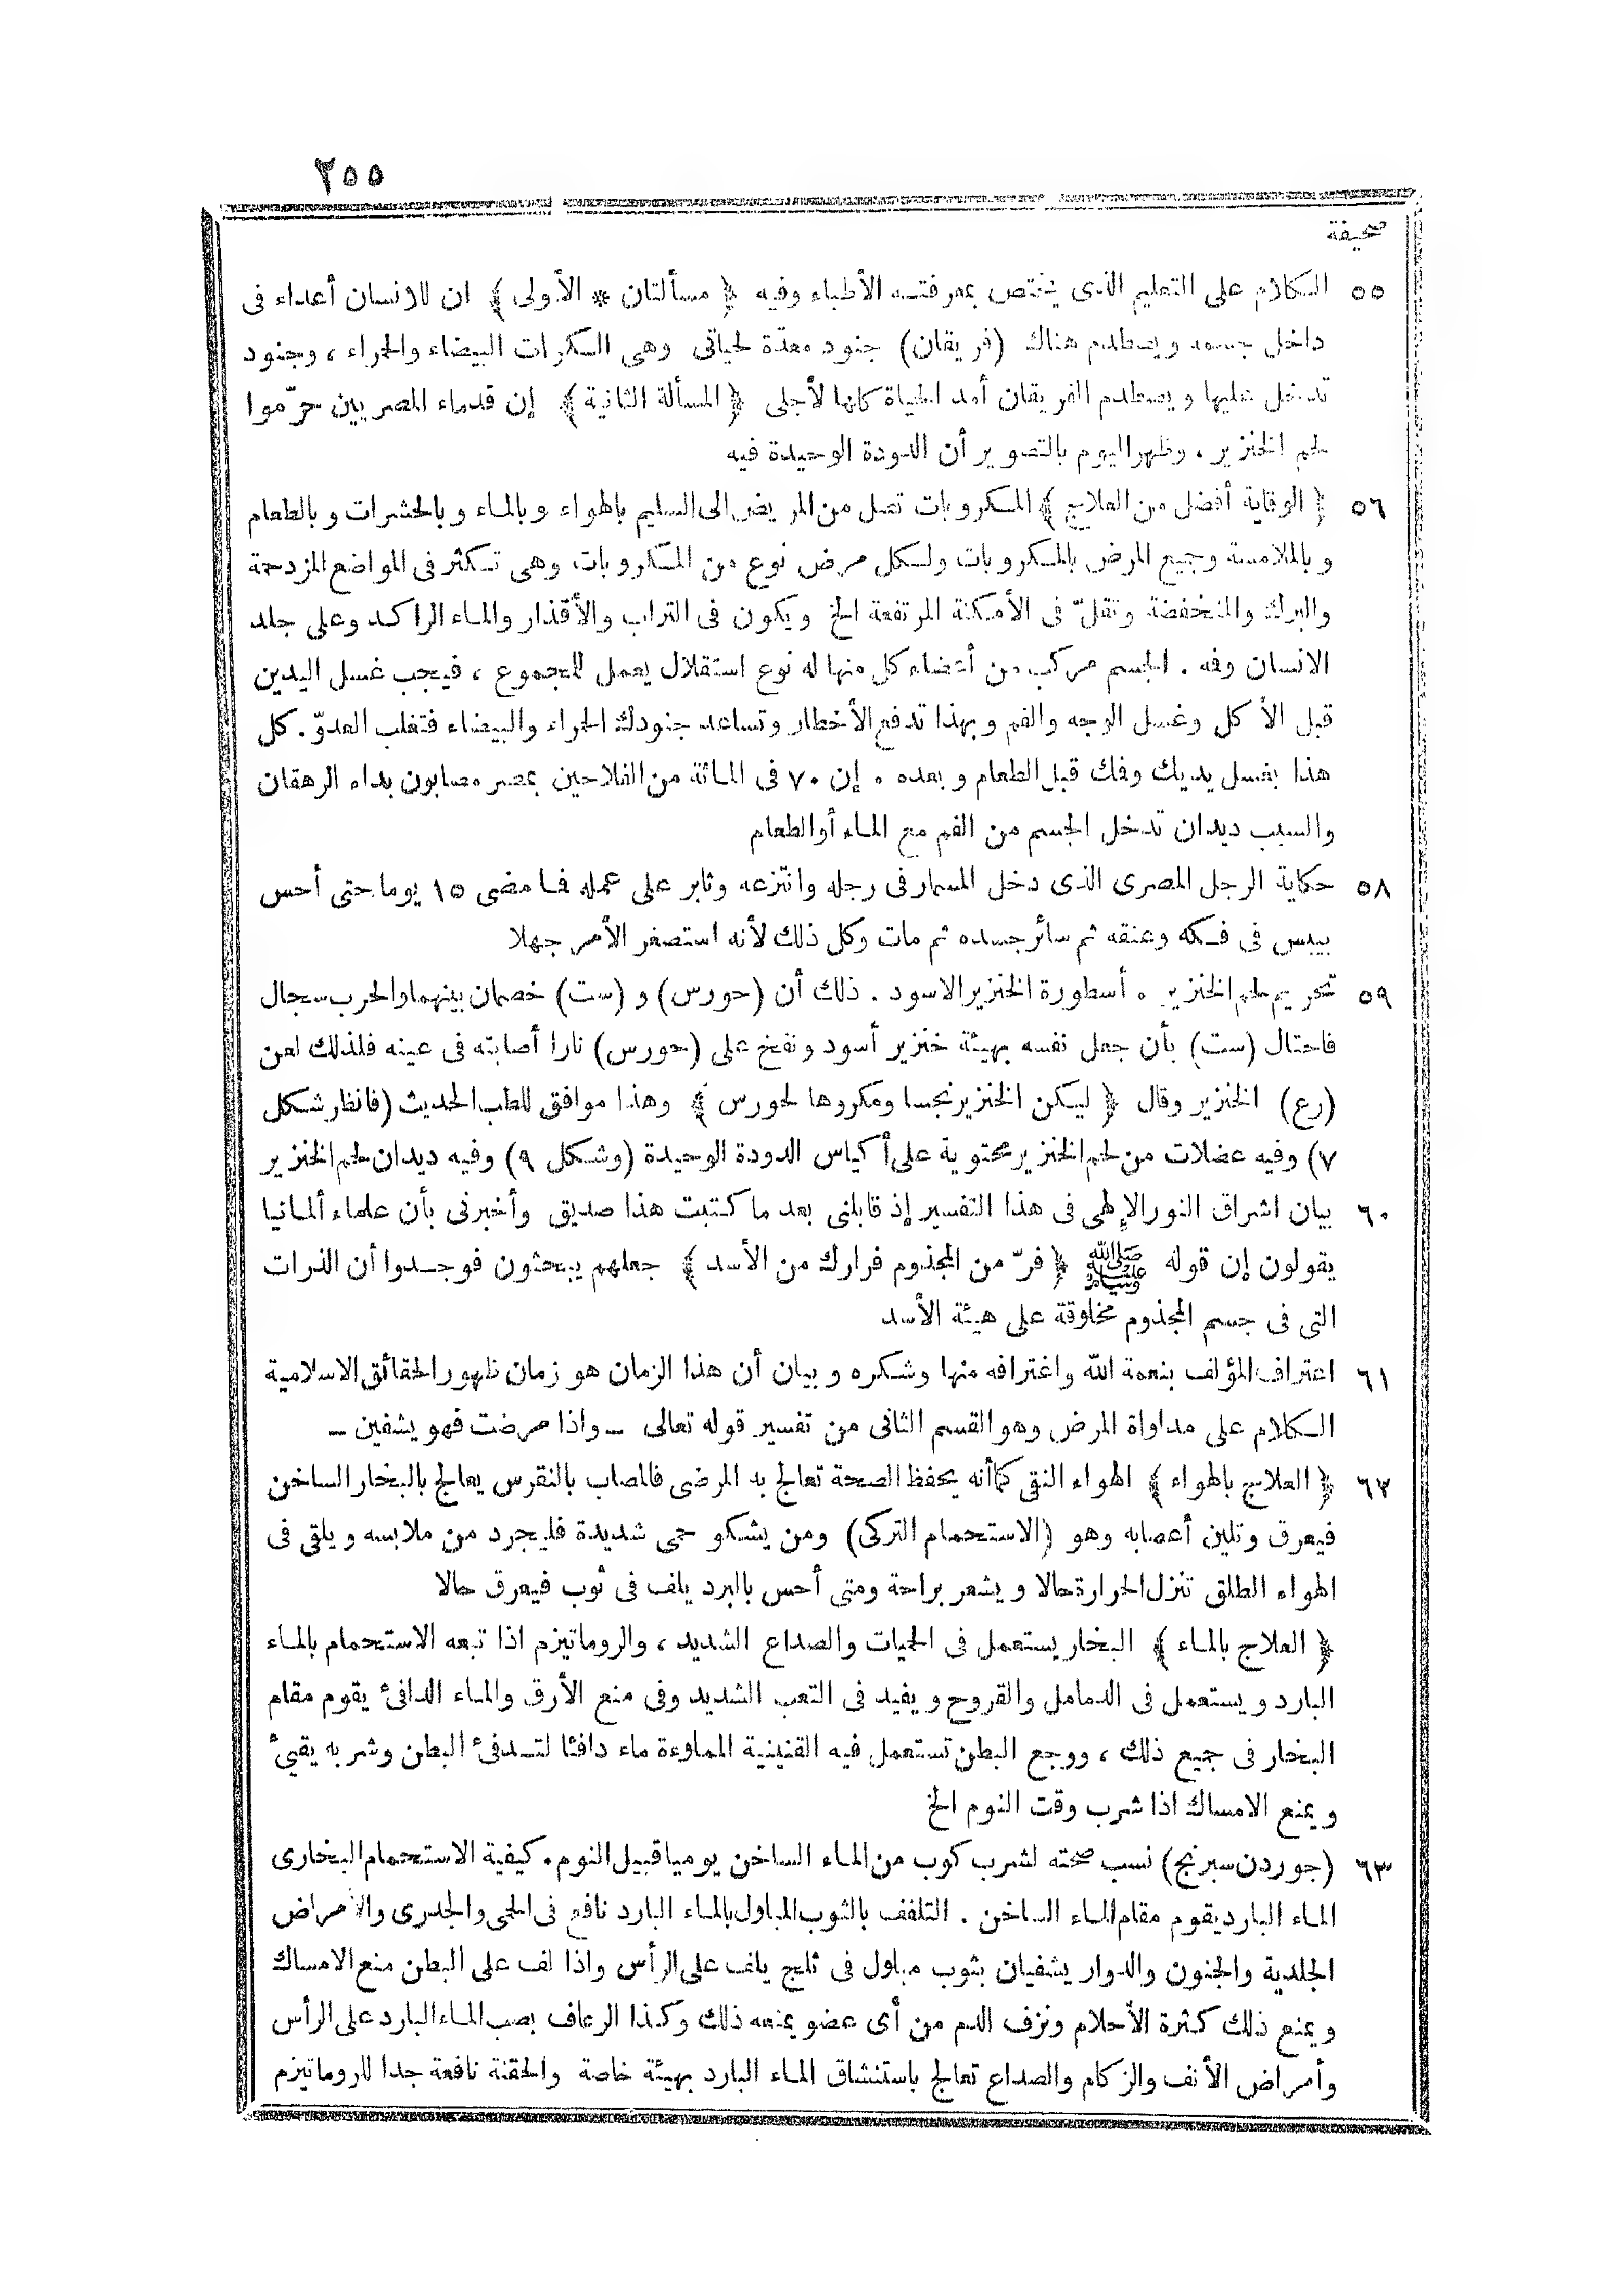 ٢٥٥
صحيفة
٥٥ الكلام على التعليم الذى يختص بمعرفته الأطباء وفيه ﴿ مسألتان * الأولى ﴾ ان للانسان أعداء فى
داخل جسمه ويصطدم هناك (فريقان) جنود معدّة لحياتى وهى الكرات البيضاء والحمراء ، وجنود
تدخل عليها ويصطدم الفريقان أمد الحياة كلها لأجلى ﴿ المسألة الثانية ﴾ إن قدماء المصريين حرّموا
لحم الخنزير ، وظهر اليوم بالتصوير أن الدودة الوحيدة فيه
٥٦ ﴿ الوقاية أفضل من العلاج ﴾ المكروبات تصل من المريض الى السليم بالهواء وبالماء وبالحشرات وبالطعام
وبالملامسة وجميع المرض بالمكروبات ولكل مرض نوع من المكروبات وهى تكثر فى المواضع المزدحمة
والبرك والمنخفضة وتقلّ فى الأمكنة المرتفعة الخ ويكون فى التراب والأقذار والماء الراكد وعلى جلد
الانسان وفه . الجسم مركب من أعضاء كل منها له نوع استقلال يعمل للمجموع ، فيجب غسل اليدين
قبل الأكل وغسل الوجه والفم وبهذا تدفع الأخطار وتساعد جنودك الحمراء والبيضاء فتغلب العدوّ . كل
هذا بغسل يديك وفك قبل الطعام وبعده . إن ٧٠ فى المائة من الفلاحين بمصر مصابون بداء الرهقان
والسبب ديدان تدخل الجسم من الفم مع الماء أو الطعام
٥٨ حكاية الرجل المصرى الذى دخل المسمار فى رجله وانتزعه وثابر على عمله فما مضى ١٥ يوما حتى أحس
بيبس فى فكه وعنقه ثم سائر جسده ثم مات وكل ذلك لأنه استصغر الأمر جهلا
٥٩ تحريم لحم الخنزير . أسطورة الخنزير الاسود . ذلك أن (حورس) و (ست) خصمان بينهما والحرب سجال
فاحتال (ست) بأن جعل نفسه بهيئة خنزير أسود ونفخ على (حورس) نارا أصابته فى عينه فلذلك لعن
(رع) الخنزير وقال ﴿ ليكن الخنزير نجسا ومكروها لحورس ﴾ وهذا موافق للطب الحديث (فانظر شكل
٧) وفيه عضلات من لحم الخنزير محتوية على أكياس الدودة الوحيدة (وشكل ٩) وفيه ديدان لحم الخنزير
٦٠ بيان اشراق النور الإلهى فى هذا التفسير إذ قابلنى بعد ما كتبت هذا صديق وأخبرنى بأن علماء ألمانيا
يقولون إن قوله ﷺ ﴿ فرّ من المجذوم فرارك من الأسد ﴾ جعلهم يبحثون فوجدوا أن الذرات
التى فى جسم المجذوم مخلوقة على هيئة الأسد
٦١ اعتراف المؤلف بنعمة الله واغترافه منها وشكره وبيان أن هذا الزمان هو زمان ظهور الحقائق الاسلامية
الكلام على مداواة المرض وهو القسم الثانى من تفسير قوله تعالى ــ واذا مرضت فهو يشفين ــ
٦٢ ﴿ العلاج بالهواء ﴾ الهواء النقى كما أنه يحفظ الصحة تعالج به المرضى فالمصاب بالنقرس يعالج بالبخار الساخن
فيعرق وتلين أعصابه وهو (الاستحمام التركى) ومن يشكو حمى شديدة فليجرد من ملابسه ويلقى فى
الهواء الطلق تنزل الحرارة حالا ويشعر براحة ومتى أحس بالبرد يلف فى ثوب فيعرق حالا
﴿ العلاج بالماء ﴾ البخار يستعمل فى الحميات والصداع الشديد ، والروماتيزم اذا تبعه الاستحمام بالماء
البارد ويستعمل فى الدمامل والقروح ويفيد فى التعب الشديد وفى منع الأرق والماء الدافئ يقوم مقام
البخار فى جميع ذلك ، ووجع البطن تستعمل فيه القنينية المملوءة ماء دافئا لتدفئ البطن وشربه يقيئ
ويمنع الامساك اذا شرب وقت النوم الخ
٦٣ (جوردن سبرنج) نسب صحته لشرب كوب من الماء الساخن يوميا قبيل النوم . كيفية الاستحمام البخارى
الماء البارد يقوم مقام الماء الساخن . التلفف بالثوب المبلول بالماء البارد نافع فى الحمى والجدرى والأمراض
الجلدية والجنون والدوار يشفيان بثوب مبلول فى ثلج يلف على الرأس واذا لف على البطن منع الامساك
ويمنع ذلك كثرة الأحلام ونزف الدم من أى عضو يمنعه ذلك وكذا الرعاف بصب الماء البارد على الرأس
وأمراض الأنف والزكام والصداع تعالج باستنشاق الماء البارد بهيئة خاصة والحقنة نافعة جدا للروماتيزم